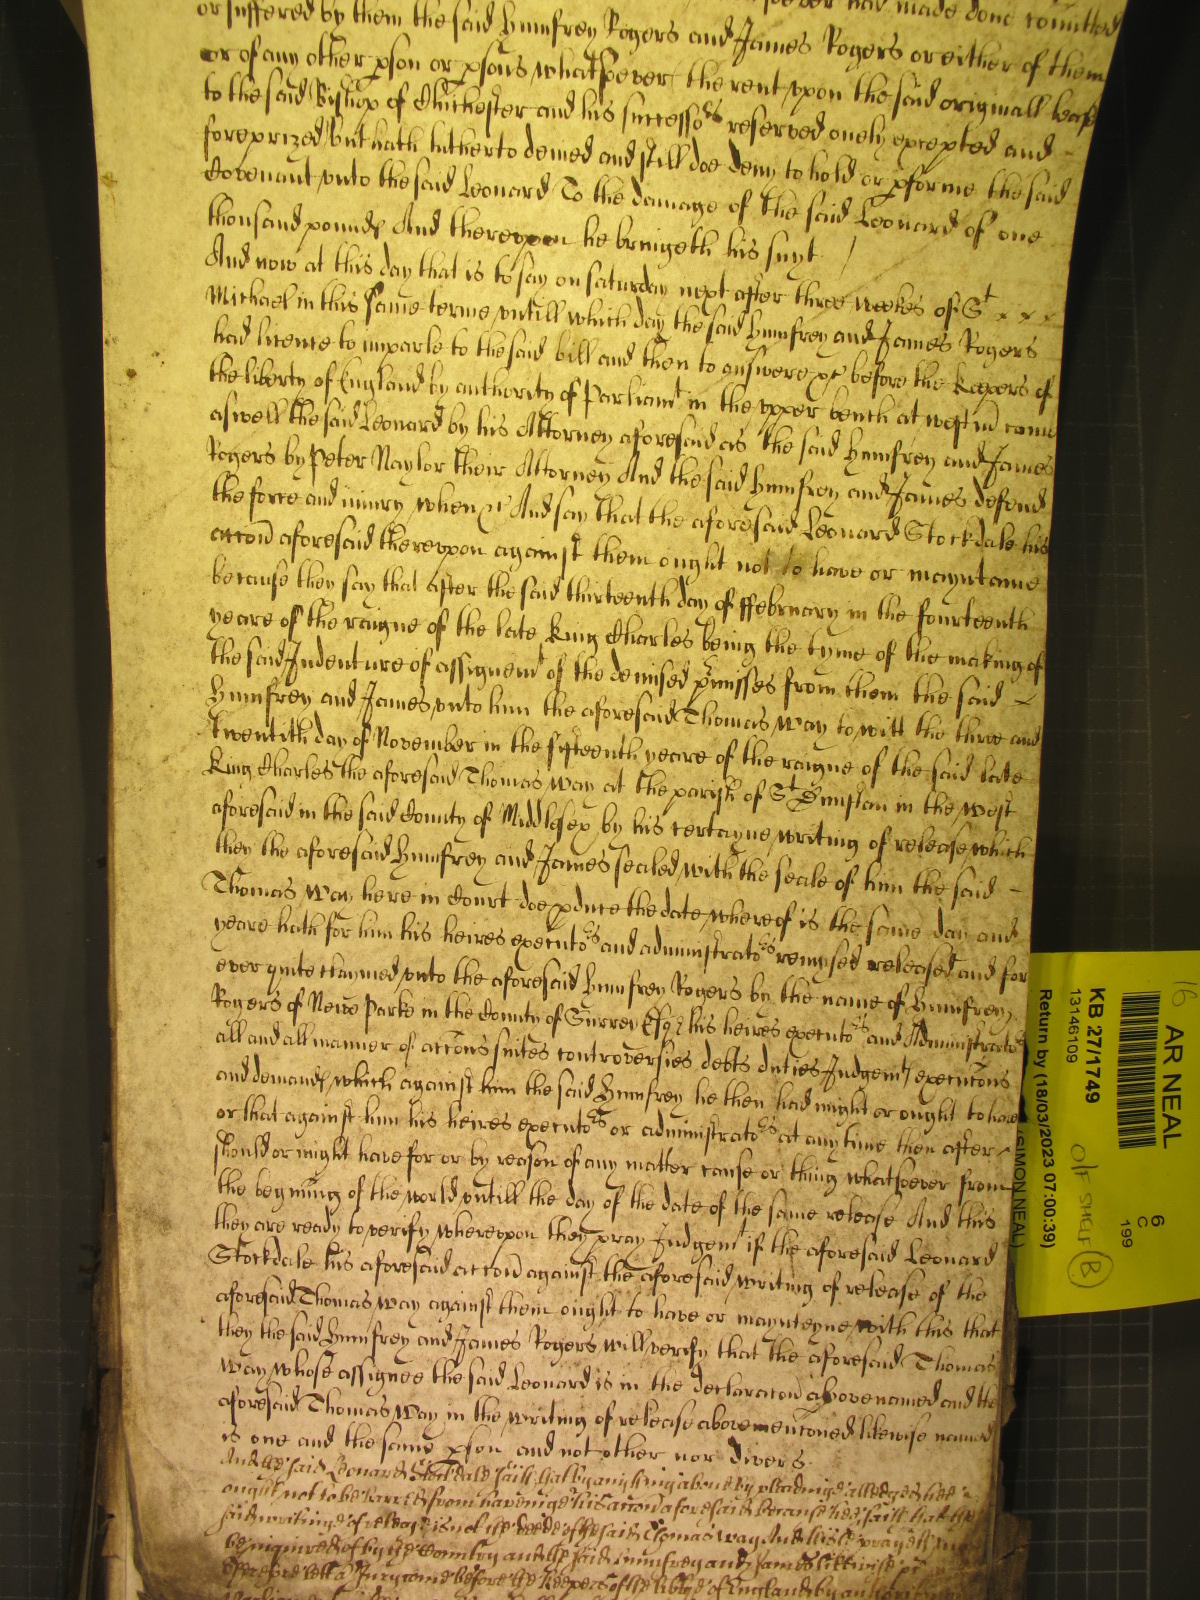 made done comitted
or suffered by them the said Humfrey Rogers and James Rogers or either of them
or of any other pson or psons whatsoever the rent vpon the said originall lease
to the said Bishop of Chichester and his successors reserved onely excepted and
foreprized but hath hitherto denied and still doe deny to hold or pforme the said
Covenant vnto the said Leonard To the damage of the said Leonard of one
thousand pounds And therevpon he bringeth his suyt
And now at this day that is to say on saturday next after three weekes of St
Michael in this same terme vntill which day the said Humfrey and James Rogers
had licence to imparle to the said bill and then to answere &c before the Keepers of
the liberty of England by authority of Parliamt in the vpper bench at westm come
aswell the said Leonard by his Attorney aforesaid as the said Humfrey and James
Rogers by Peter Naylor their Attorney And the said Humfrey and James defend
the force and iniury when &c And say that the aforesaid Leonard Stockdale his
accon aforesaid therevpon against them ought not to have or mayntaine
because they say that after the said thirteenth day of ffebruary in the fourteenth
yeare of the raigne of the late King Charles being the tyme of the making of
the said Indenture of assignemt of the demised pmisses from them the said
Humfrey and James vnto him the aforesaid Thomas way to witt the three and
twentith day of November in the fifteenth yeare of the raigne of the said late
King Charles the aforesaid Thomas way at the parish of St Dunstan in the west
aforesaid in the said County of Middlesex by his certayne writing of release which
they the aforesaid Humfrey and James sealed with the seale of him the said
Thomas way here in Court doe pduce the date whereof is the same day and
yeare hath for him his heires executors and administrators remysed released and for
ever quite claymed vnto the aforesaid Humfrey Rogers by the name of Humfrey
Rogers of New Parke in the County of Surrey Esqr his heires executors and Administrators
all and all manner of accons suites controversies debts duties Judgemts execucons
and demands which against him the said Humfrey he then had might or ought to have
or that against him his heires executors or administrators at any time then after
should or might have for or by reason of any matter cause or thing whatsoever from
the begining of the world vntill the day of the date of the same release And this
they are ready to verify wherevpon they pray Judgemt if the aforesaid Leonard
Stockdale his aforesaid accon against the aforesaid writing of release of the
aforesaid Thomas way against them ought to have or maynteyne with this that
they the said Humfrey and James Rogers will verify that the aforesaid Thomas
way whose assignee the said Leonard is in the declaracon abovenamed and the
aforesaid Thomas Way in the writing of release abovemenconed likewise named
is one and the same pson and not other nor divers
And the said Leonard Stockdale saith that by any thing above by pleadinge alledged hee
ought not to be barred from haveinge his accon aforesaid because hee saith that the
said writinge of release is not the deede of the said Thomas way And this he prayeth may
be inquired of by the Countrey and the said Humfrey and James likewise &c
Therefore lett a Jury come before the Keepers of the libty of England by authority
AR NEAL
KB 27/1749
13146109
Return by (18/03/2023 07:00:39)
(SIMON NEAL)
6
C
199
16
O/F SHELF
B